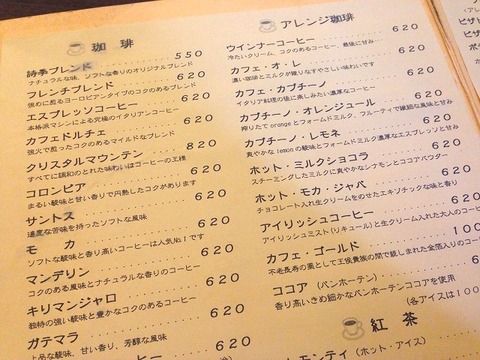 珈琲
詩季ブレンド 550
ナチュラルな味、ソフトな香りのオリジナルブレンド
フレンチブレンド 620
強めに煎るヨーロピアンタイプのコクのあるブレンド
エスプレッソコーヒー 620
本格派マシンによる究極のイタリアンコーヒー
カフェドルチェ 620
強火で煎ったコクのあるマイルドなブレンド
クリスタルマウンテン 820
すべてに調和のとれた味わいはコーヒーの王様
コロンビア 620
まるい酸味と甘い香りで円熟したコクがあります
サントス 620
適度な苦味を持ったソフトな風味
モカ 620
ソフトな酸味と香り高いコーヒーは人気№1です
マンデリン 620
コクのある風味とナチュラルな香りのコーヒー
キリマンジャロ 620
独特の強い酸味と豊かなコクのあるコーヒー
ガテマラ 620
上品な酸味、甘い香り、芳醇な風味
コーヒー
アレンジ珈琲
ウインナーコーヒー 620
冷たいクリーム、コクのあるコーヒー、最後に甘み
カフェ・オ・レ 620
濃い珈琲とミルクが織りなすやさしい味わいです
カフェ・カプチーノ 620
イタリア料理の後に楽しみたい濃厚なコーヒー
カプチーノ・オレンジュール 620
搾りたてorangeとフォームドミルク、フルーティで繊細な風味と甘み
カプチーノ・レモネ 620
爽やかなlemonの酸味とフォームドミルク濃厚なエスプレッソと甘み
ホット・ミルクショコラ 620
スチーミングしたミルクに爽やかなシナモンとココアパウダー
ホット・モカ・ジャバ 620
チョコレート入れ生クリームをのせたエキゾチックな味と香り
アイリッシュコーヒー 620
アイリッシュミスト(リキュール)と生クリーム入れた大人のコーヒー
カフェ・ゴールド 100
不老長寿の薬として王侯貴族の間で親しまれた金箔入りのコーヒー
ココア (バンホーテン) 620
香り高いきめ細かなバンホーテンココアを使用
(各アイスは100
紅茶
モンティ(ホット・アイス)
ピザ